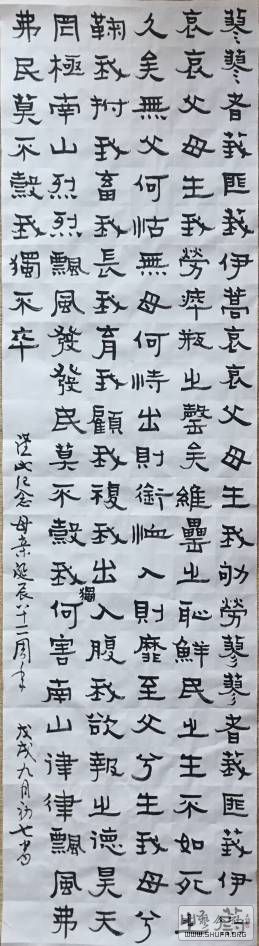 蓼蓼者莪匪莪伊蒿哀哀父母生我劬勞蓼蓼者莪匪莪伊蔚
哀哀父母生我勞瘁瓶之罄矣維罍之恥鮮民之生不如死之
久矣無父何怙無母何恃出則銜恤入則靡至父兮生我母兮
鞠我拊畜我長我育我顧我複我出入腹我欲報之德昊天
罔極南山烈烈飄風發發民莫不穀我獨何害南山律律飄風弗
弗民莫不穀我獨不卒
紀念母親誕辰八十二周年
戊戌九月初七書
WWW.SHUFA.ORG